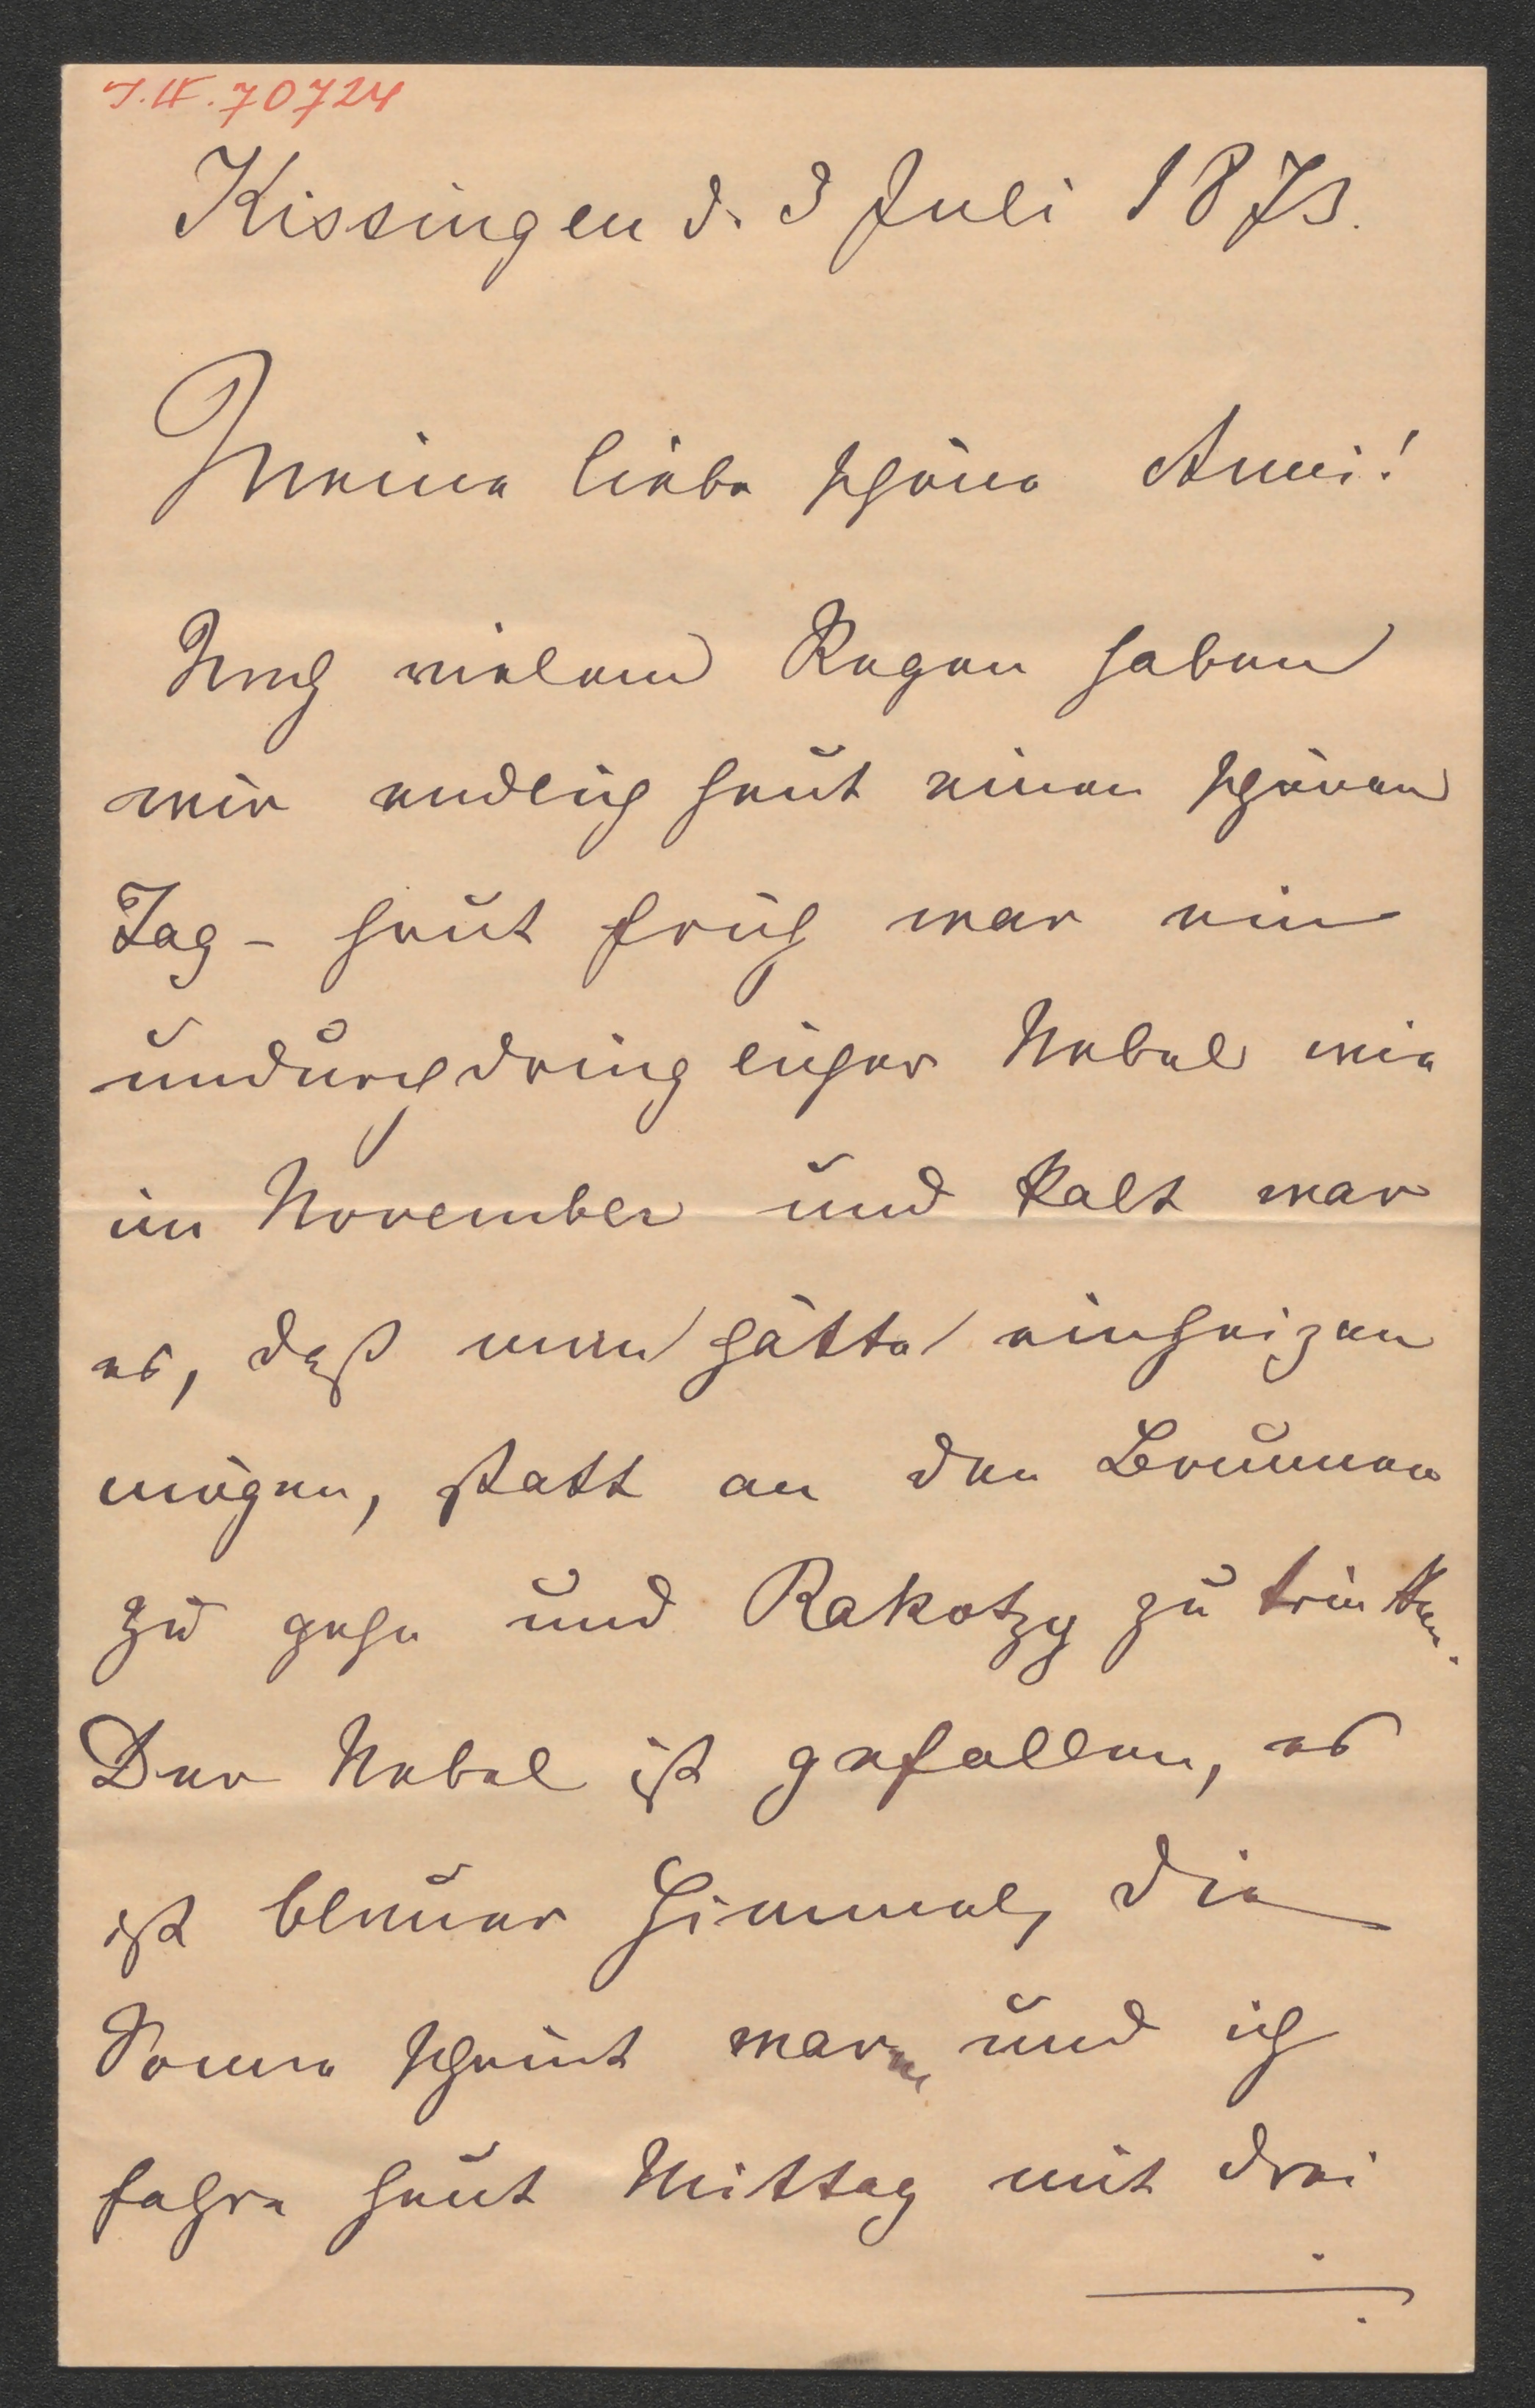 J.N. 70724
Kissingen d. 3 Juli 1873.
Meine liebe schöne Anni!
Nach vielem Regen haben
wir endlich heut einen schönen
Tag - heut früh war ein
undurchdringlicher Nebel wie
im November und kalt war
es, daß man hätte einheizen
mögen, statt an den Brunnen
zu gehn und Rakotzy zu trinken.
Der Nebel ist gefallen, es
ist blauer Himmel, die
Sonne scheint warm und ich
fahre heut Mittag mit drei